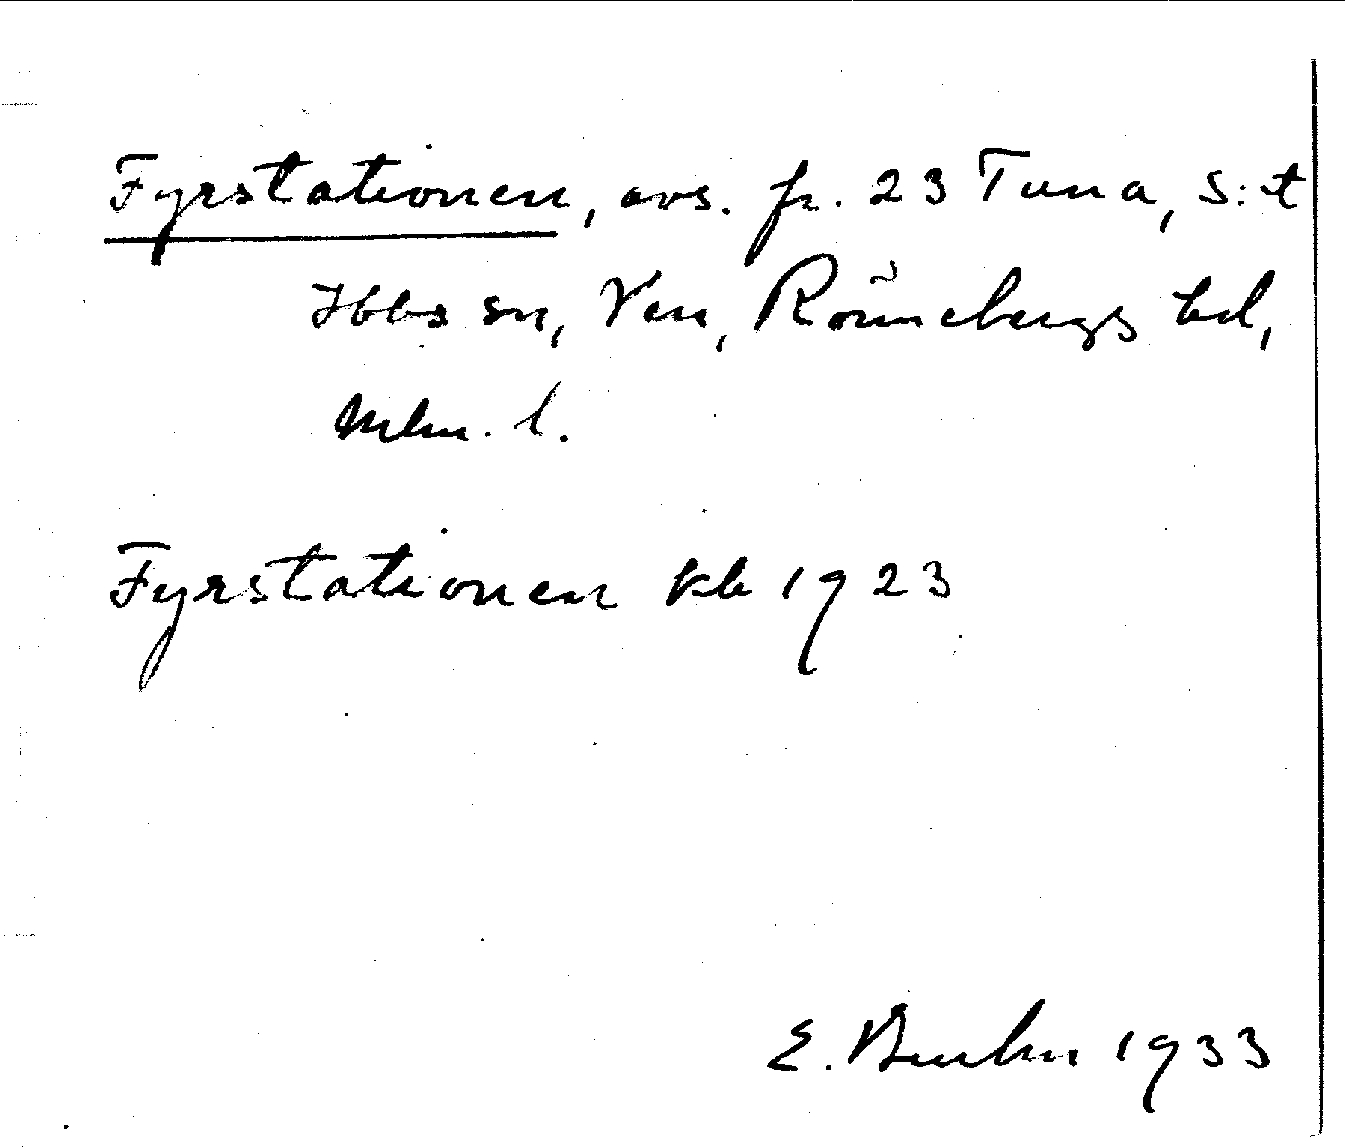 Fyrstationen, avs. fr. 23 Tuna, S:t
Ibbs sn, Ven, Rönnebergs hd,
Mlm. l.
Fyrstationen kb 1923
E. Bruhn 1933